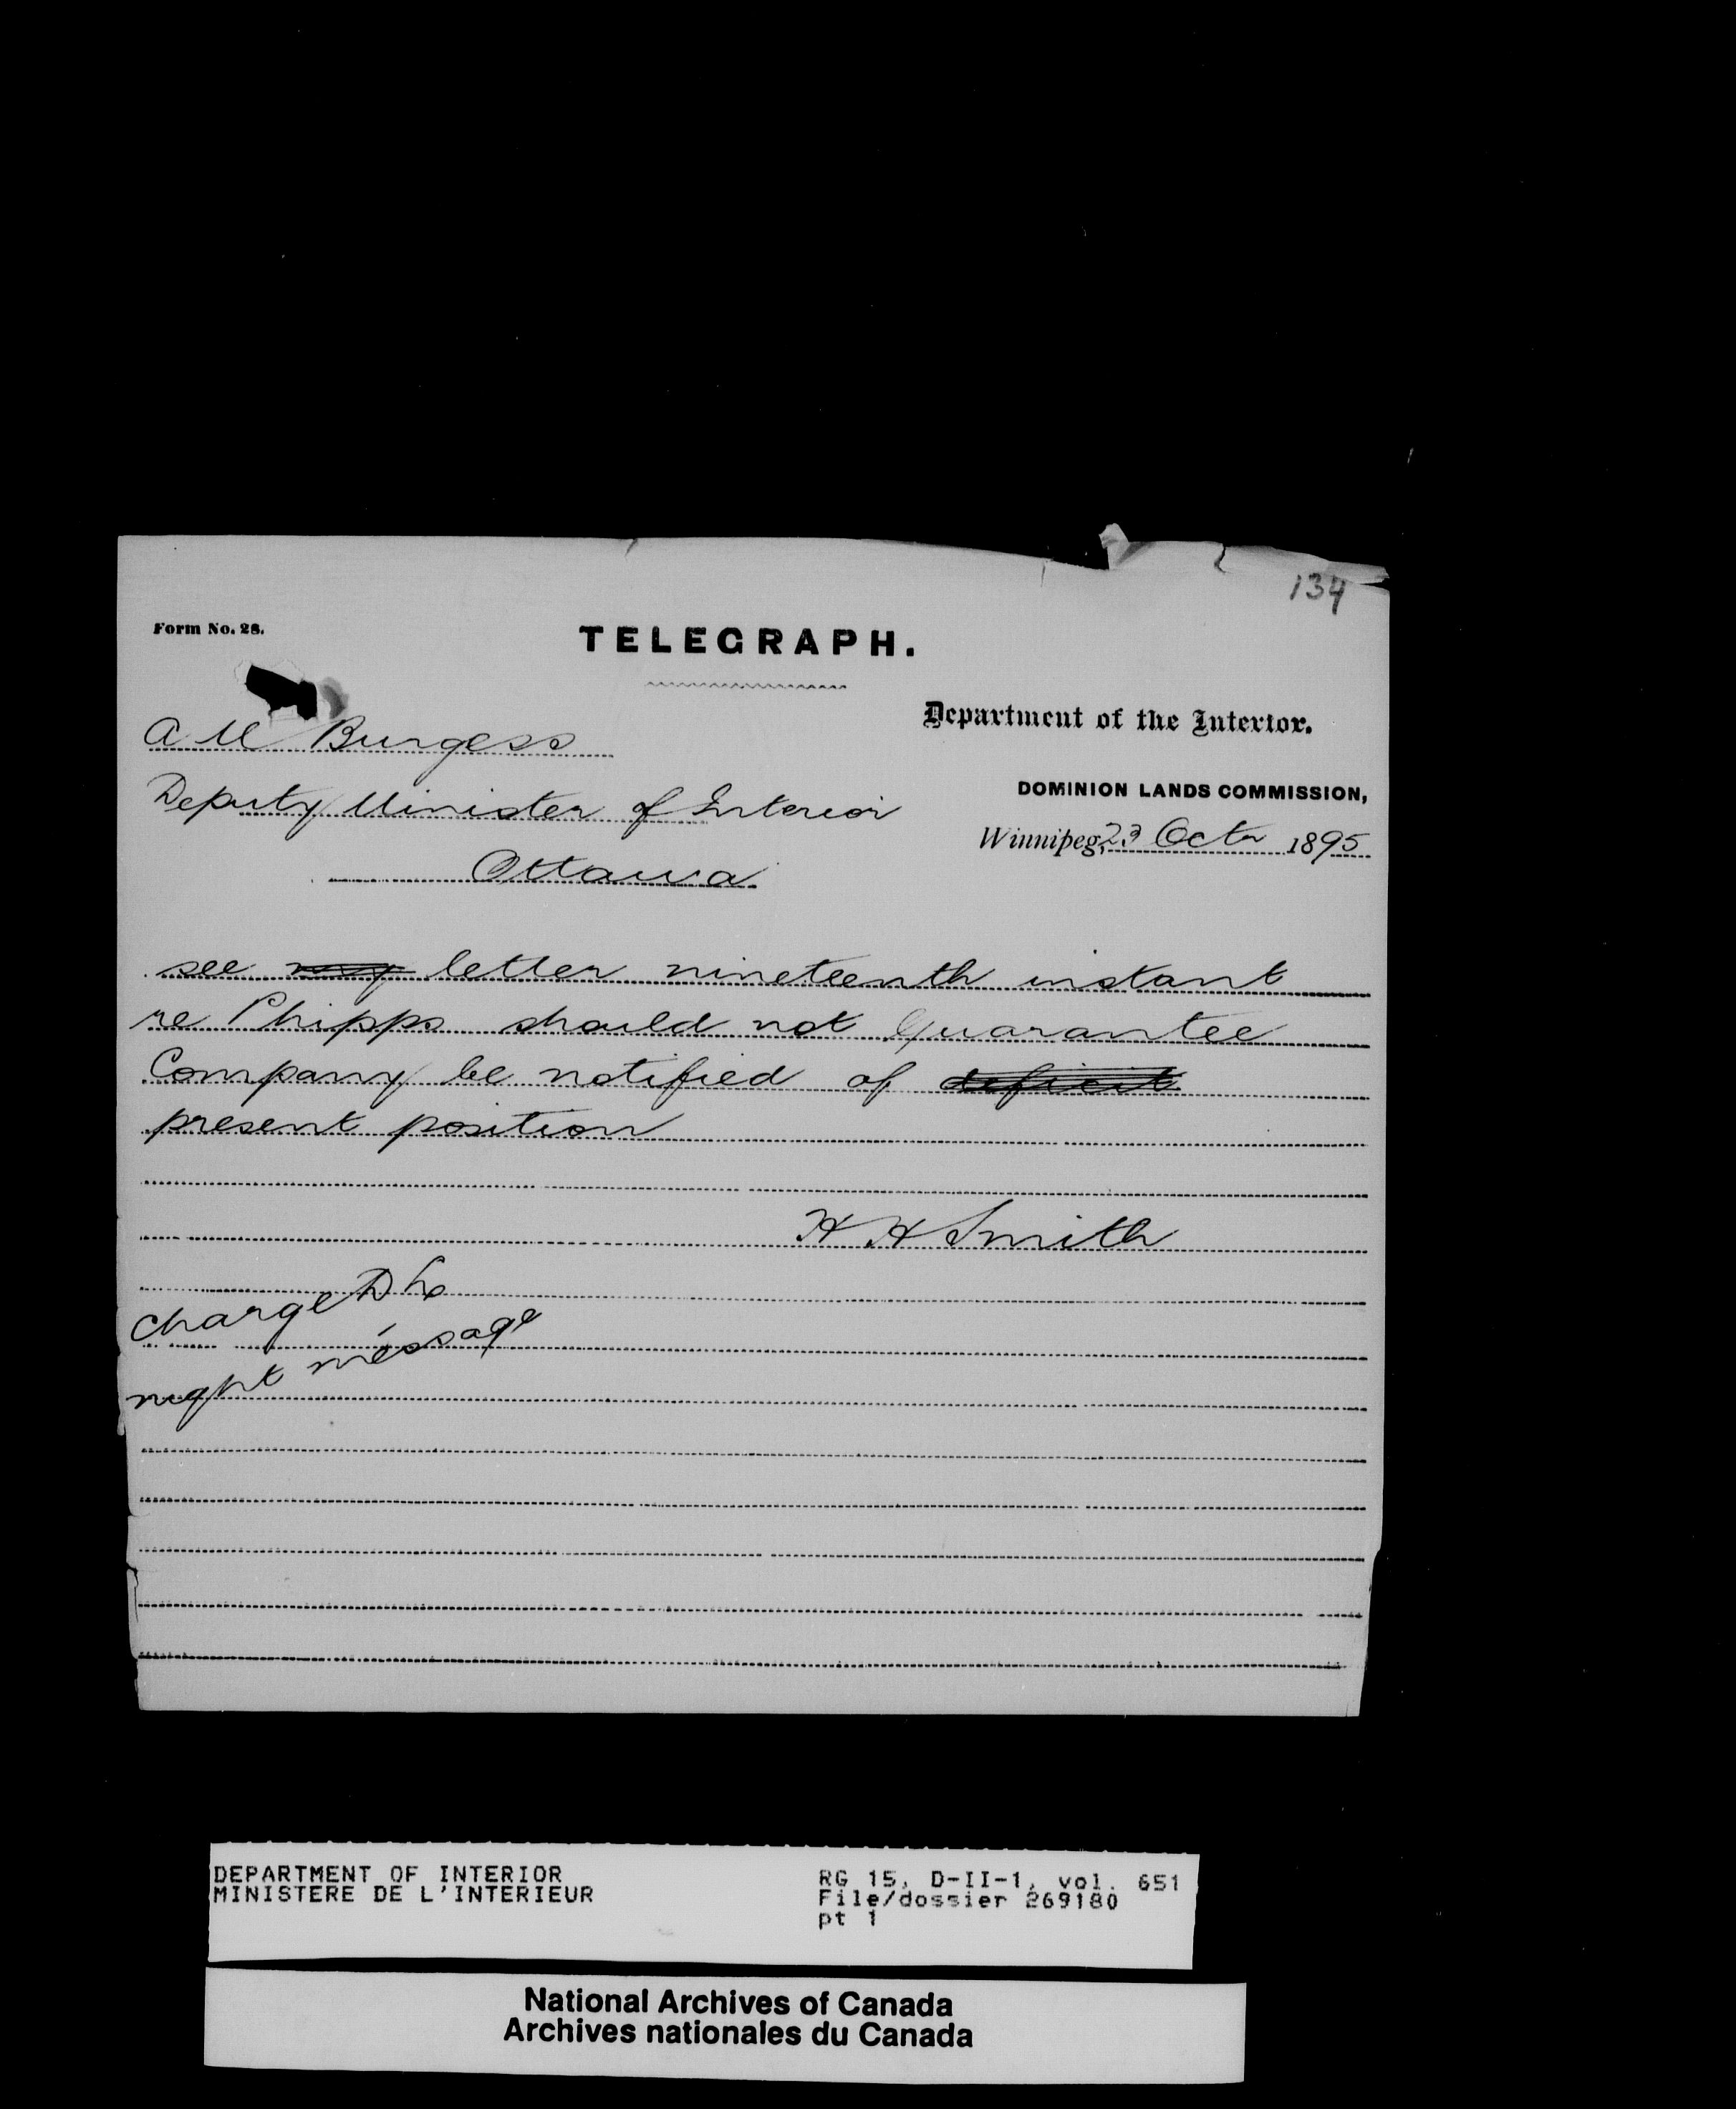 134
Form No. 28.
TELEGRAPH.
Department of the Interior.
A M Burgess
DOMINION LANDS COMMISSION,
Deputy Minister of Interior
Winnipeg, 23 Octr 1895
Ottawa
see my letter nineteenth instant
re Phipps should not Guarantee
Company be notified of deficit
present position
H H Smith
charge D L
night message
DEPARTMENT OF INTERIOR
MINISTERE DE L'INTERIEUR
RG 15, D-II-1, vol. 651
File/dossier 269180
pt 1
National Archives of Canada
Archives nationales du Canada